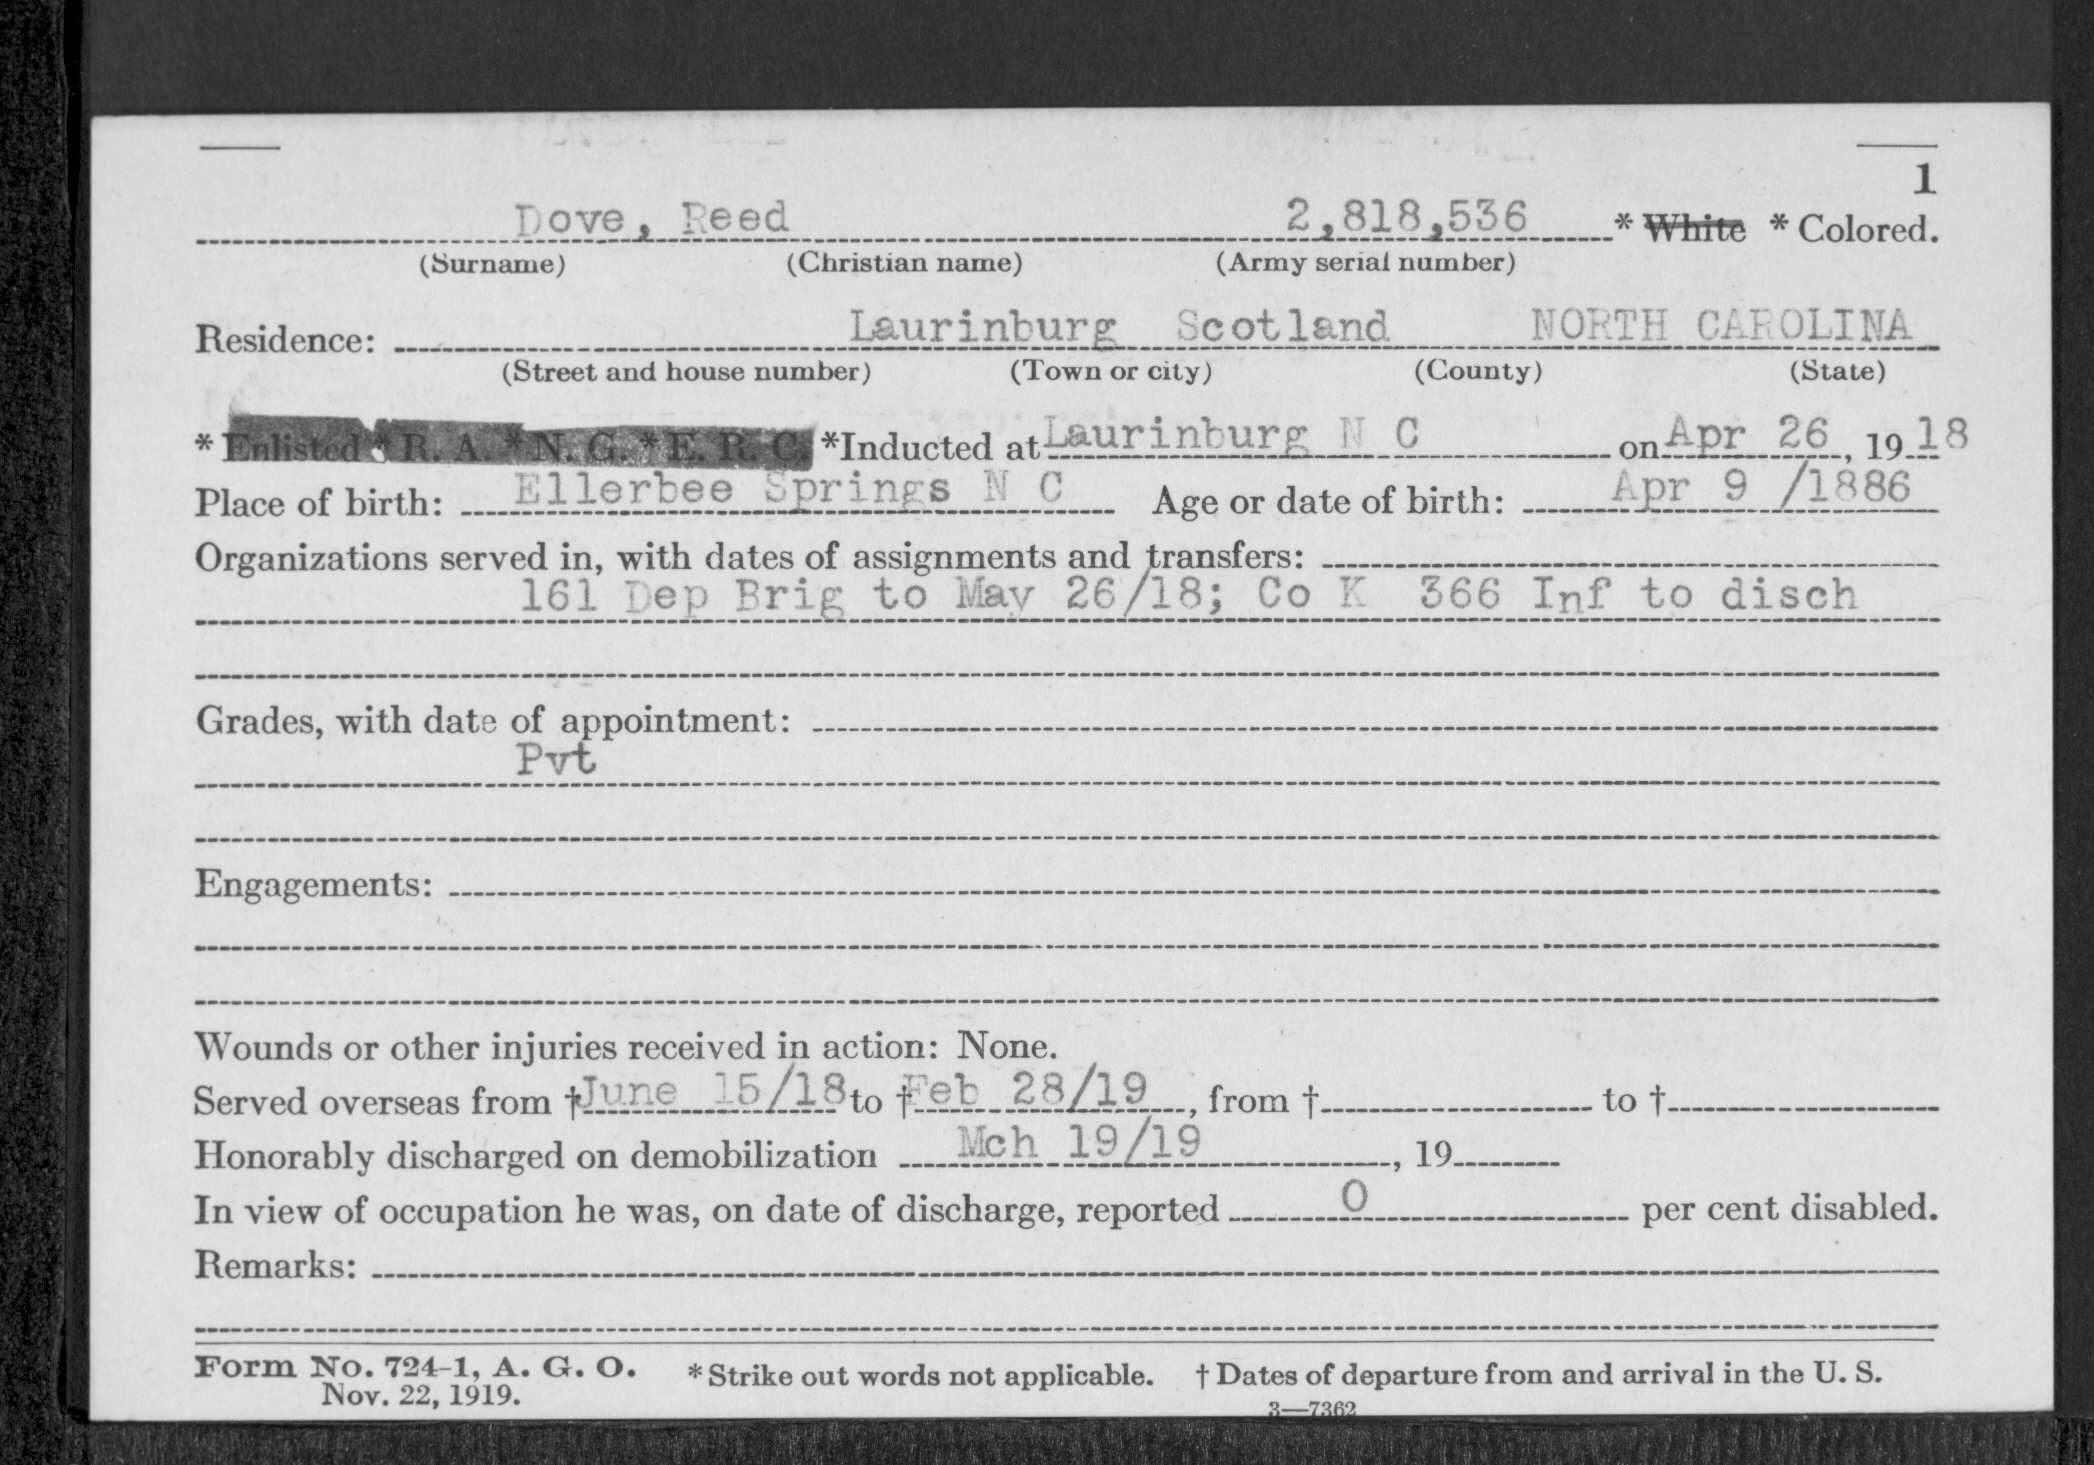 1
Dove, Reed 2,818,536 * White * Colored.
(Surname) (Christian name) (Army serial number)
Residence: Laurinburg Scotland NORTH CAROLINA
(Street and house number) (Town or city) (County) (State)
* Enlisted * R. A. * N. G. * E. R. C. *Inducted at Laurinburg N C on Apr 26, 1918
Place of birth: Ellerbee Springs N C Age or date of birth: Apr 9 /1886
Organizations served in, with dates of assignments and transfers:
161 Dep Brig to May 26/18; Co K 366 Inf to disch
Grades, with date of appointment:
Pvt
Engagements:
Wounds or other injuries received in action: None.
Served overseas from † June 15/18 to † Feb 28/19, from † to †
Honorably discharged on demobilization Mch 19/19, 19
In view of occupation he was, on date of discharge, reported 0 per cent disabled.
Remarks:
Form No. 724-1, A. G. O. * Strike out words not applicable. † Dates of departure from and arrival in the U. S.
Nov. 22, 1919.
3—7362